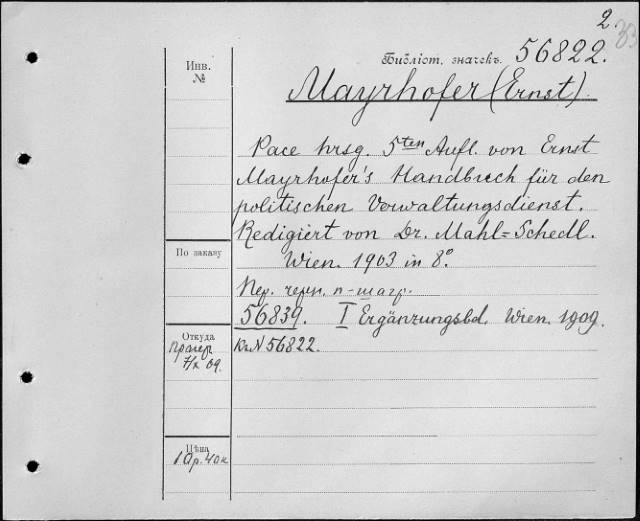 2.
33
Библіот. значекъ. 56822.
Инв.
№
Mayrhofer (Ernst).
Pace hrsg. 5ten Aufl. von Ernst
Mayrhofer's Handbuch für den
politischen Verwaltungsdienst.
Redigiert von Dr. Mahl=Schedl.
По заказу
Wien. 1903 in 8º.
Пер. черн. п-шагр.
56839. I Ergänzungsbd. Wien. 1909.
Откуда
Прагер
7/X 09.
Къ N 56822.
Цѣна
10р. 40к